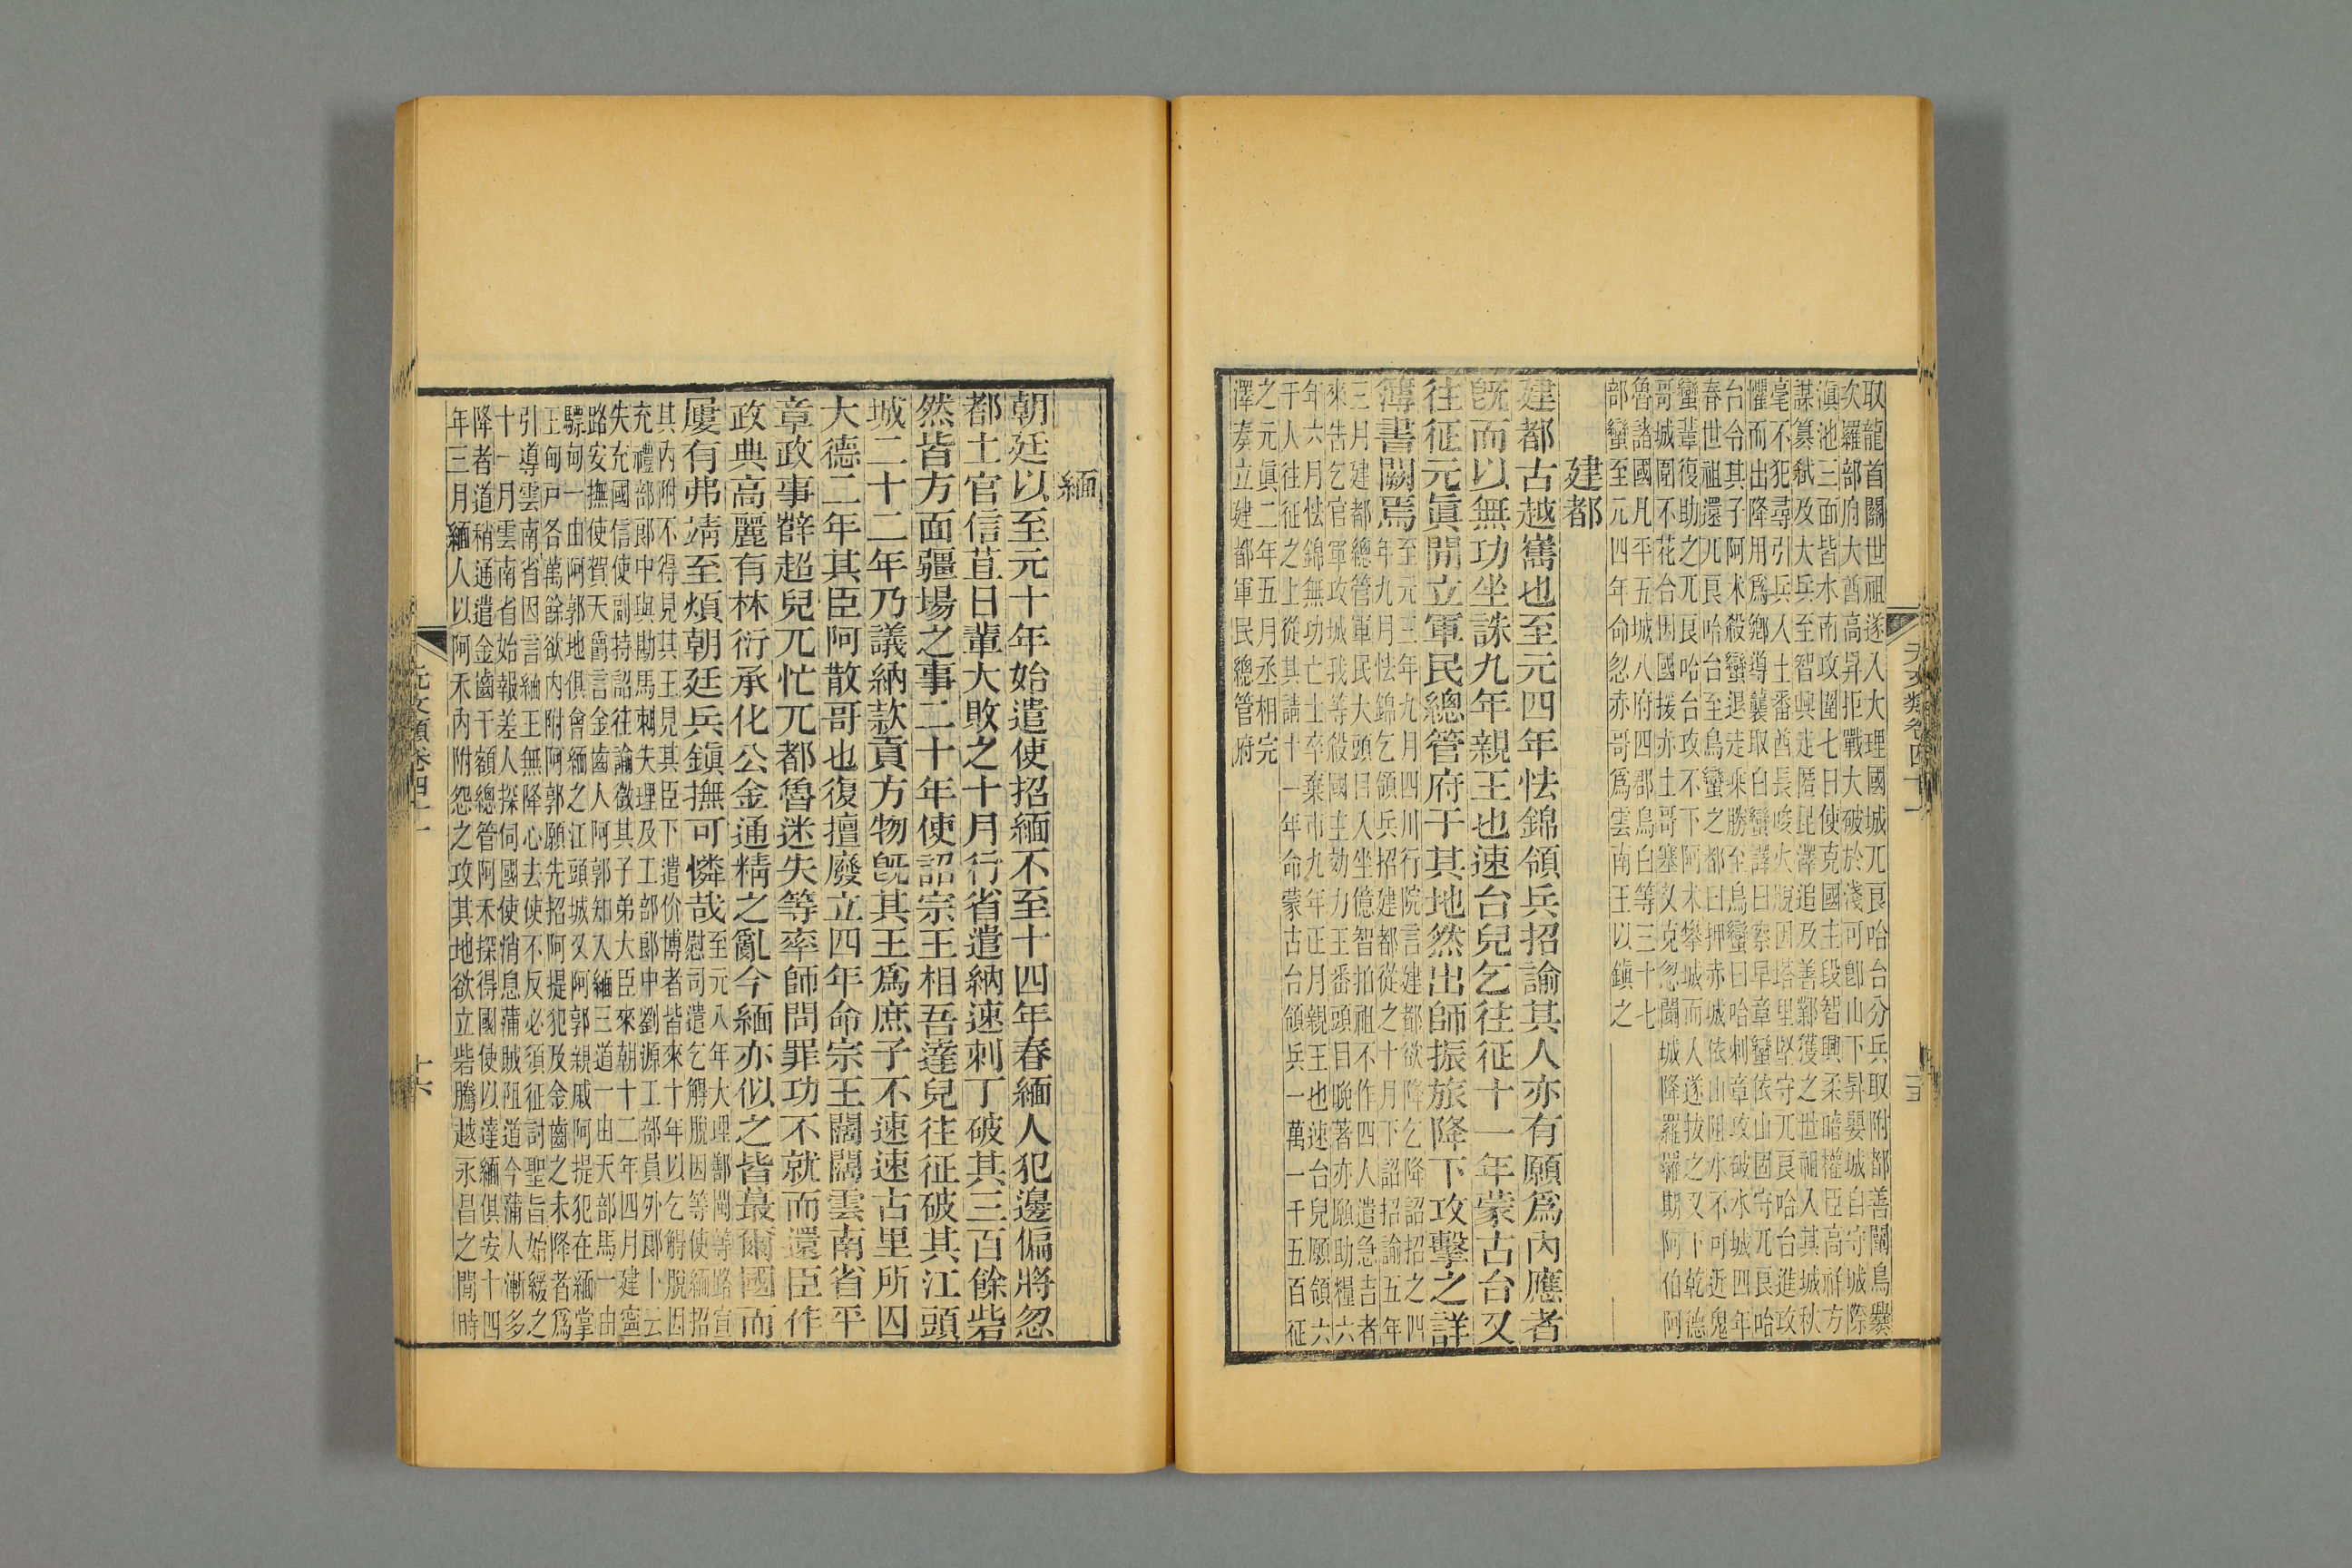 取龍首關世祖遂入大理國城兀良哈台分兵取附都善闡烏爨
次羅部府大酋高昇拒戰大破於淺可卽山下昇嬰城自守城際
滇池三面皆水南攻圍七日使克國主段智興柔暗權臣高祥方
謀篡弒及大兵至智興走匿昆澤追及善鄯獲之世祖入其城秋
毫不犯尋引兵入土番酋長唆火脫因塔里堅守兀良哈台進攻
懼而出降用爲鄉導襲取白蠻譯曰察早章蠻依山固守兀良哈
台令其子阿朮殺蠻退走乘勝至烏蠻曰哈刺章攻破水城四年
春世祖還兀良哈台至烏蠻之都曰押赤城城依山阻水不可近鬼
蠻輩復助之兀良哈台攻不下阿朮攀城而人遂拔之又下乾德
哥城圍不花合因國援亦土哥塞又克忽闌城降羅羅斯阿伯阿
魯諸國凡平五城八府四郡烏白等三十七
部蠻至元四年命忽赤哥爲雲南王以鎭之
建都
建都古越嶲也至元四年怯錦領兵招諭其人亦有願爲內應者
旣而以無功坐誅九年親王也速台兒乞往征十一年蒙古台又
往征元眞開立軍民總管府于其地然出師振旅降下攻擊之詳
簿書闕焉
至元三年九月四川行院言建都欲降乞降詔招之四
年九月怯錦乞領兵招建都從之十月下詔招諭五年
三月建都總管軍民大頭目人坐億智拍祖不作四人遣急吉者
來告乞官軍攻城我等殺國主効力王番頭目晚著亦願助糧六
年六月怯錦無功亡士卒棄市九年正月親王也速台兒願領六
千人往征之上從其請十一年命蒙古台領兵一萬一千五百征
之元眞二年五月丞相完
澤奏立建都軍民總管府
緬
朝廷以至元十年始遣使招緬不至十四年春緬人犯邊偏將忽
都土官信苴日輩大敗之十月行省遣納速刺丁破其三百餘砦
然皆方面疆場之事二十年使詔宗王相吾達兒往征破其江頭
城二十二年乃議納款貢方物旣其王爲庶子不速速古里所囚
大德二年其臣阿散哥也復擅廢立四年命宗王闊闊雲南省平
章政事薛超兒兀忙兀都魯迷失等率師問罪功不就而還臣作
政典高麗有林衍承化公金通精之亂今緬亦似之皆蕞爾國而
屢有弗靖至煩朝廷兵鎭撫可憐哉
至元八年大理鄯闡等路宣
慰司遣乞䚟脫因等使緬招
其內附不得見其王見其臣下遣价博者皆來十年以乞䚟脫因
充禮部郎中與勘馬刺失理及工部郎中劉源工部員外郎卜云
失充國信使副持詔往諭徵其子弟大臣來朝十二年四月建寧
路安撫使賀天爵言金齒人阿郭知入緬三道一由天部馬一由
驃甸一由阿郭地俱會緬之江頭城又阿郭親戚阿提犯在緬掌
王甸戶各萬餘欲內附阿郭願先招阿提犯及金齒之未降者爲
引導雲南省因言緬王無降心去使不反必須征討聖旨始緩之
十一月雲南省始報差人探伺國使消息蒲賊阻道今蒲人漸多
降者道稍通遣金齒干額總管阿禾探得國使以達緬俱安十四
年三月緬人以阿禾內附怨之攻其地欲立砦騰越永昌之閒時
元文類卷四十一
十六